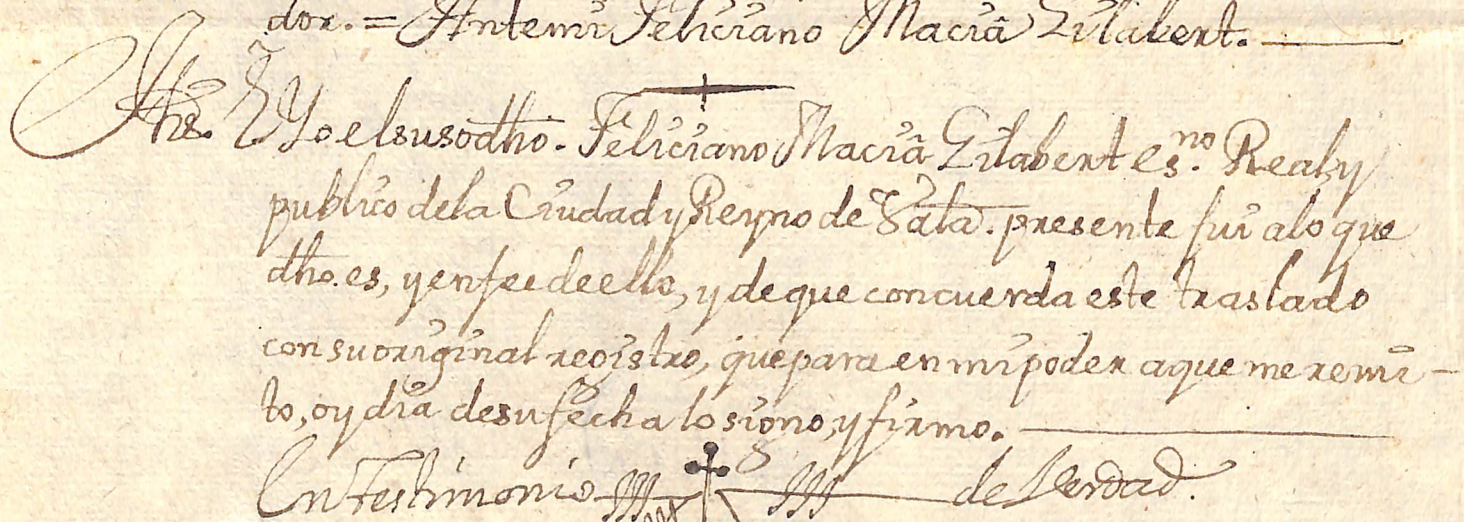 dor. = Antemi Feliciano Maciâ Gilabert.
Yo el susodho. Feliciano Maciâ Gilabert es.no Real y
publico de la Ciudad y Reyno de Vala. presente fui alo que
dho. es, y en fee de ello, y de que concuerda este traslado
con su original registro, que para en mi poder a que me remi-
to, oy dia de su fecha lo signo, y firmo.
En Testimonio de Verdad.